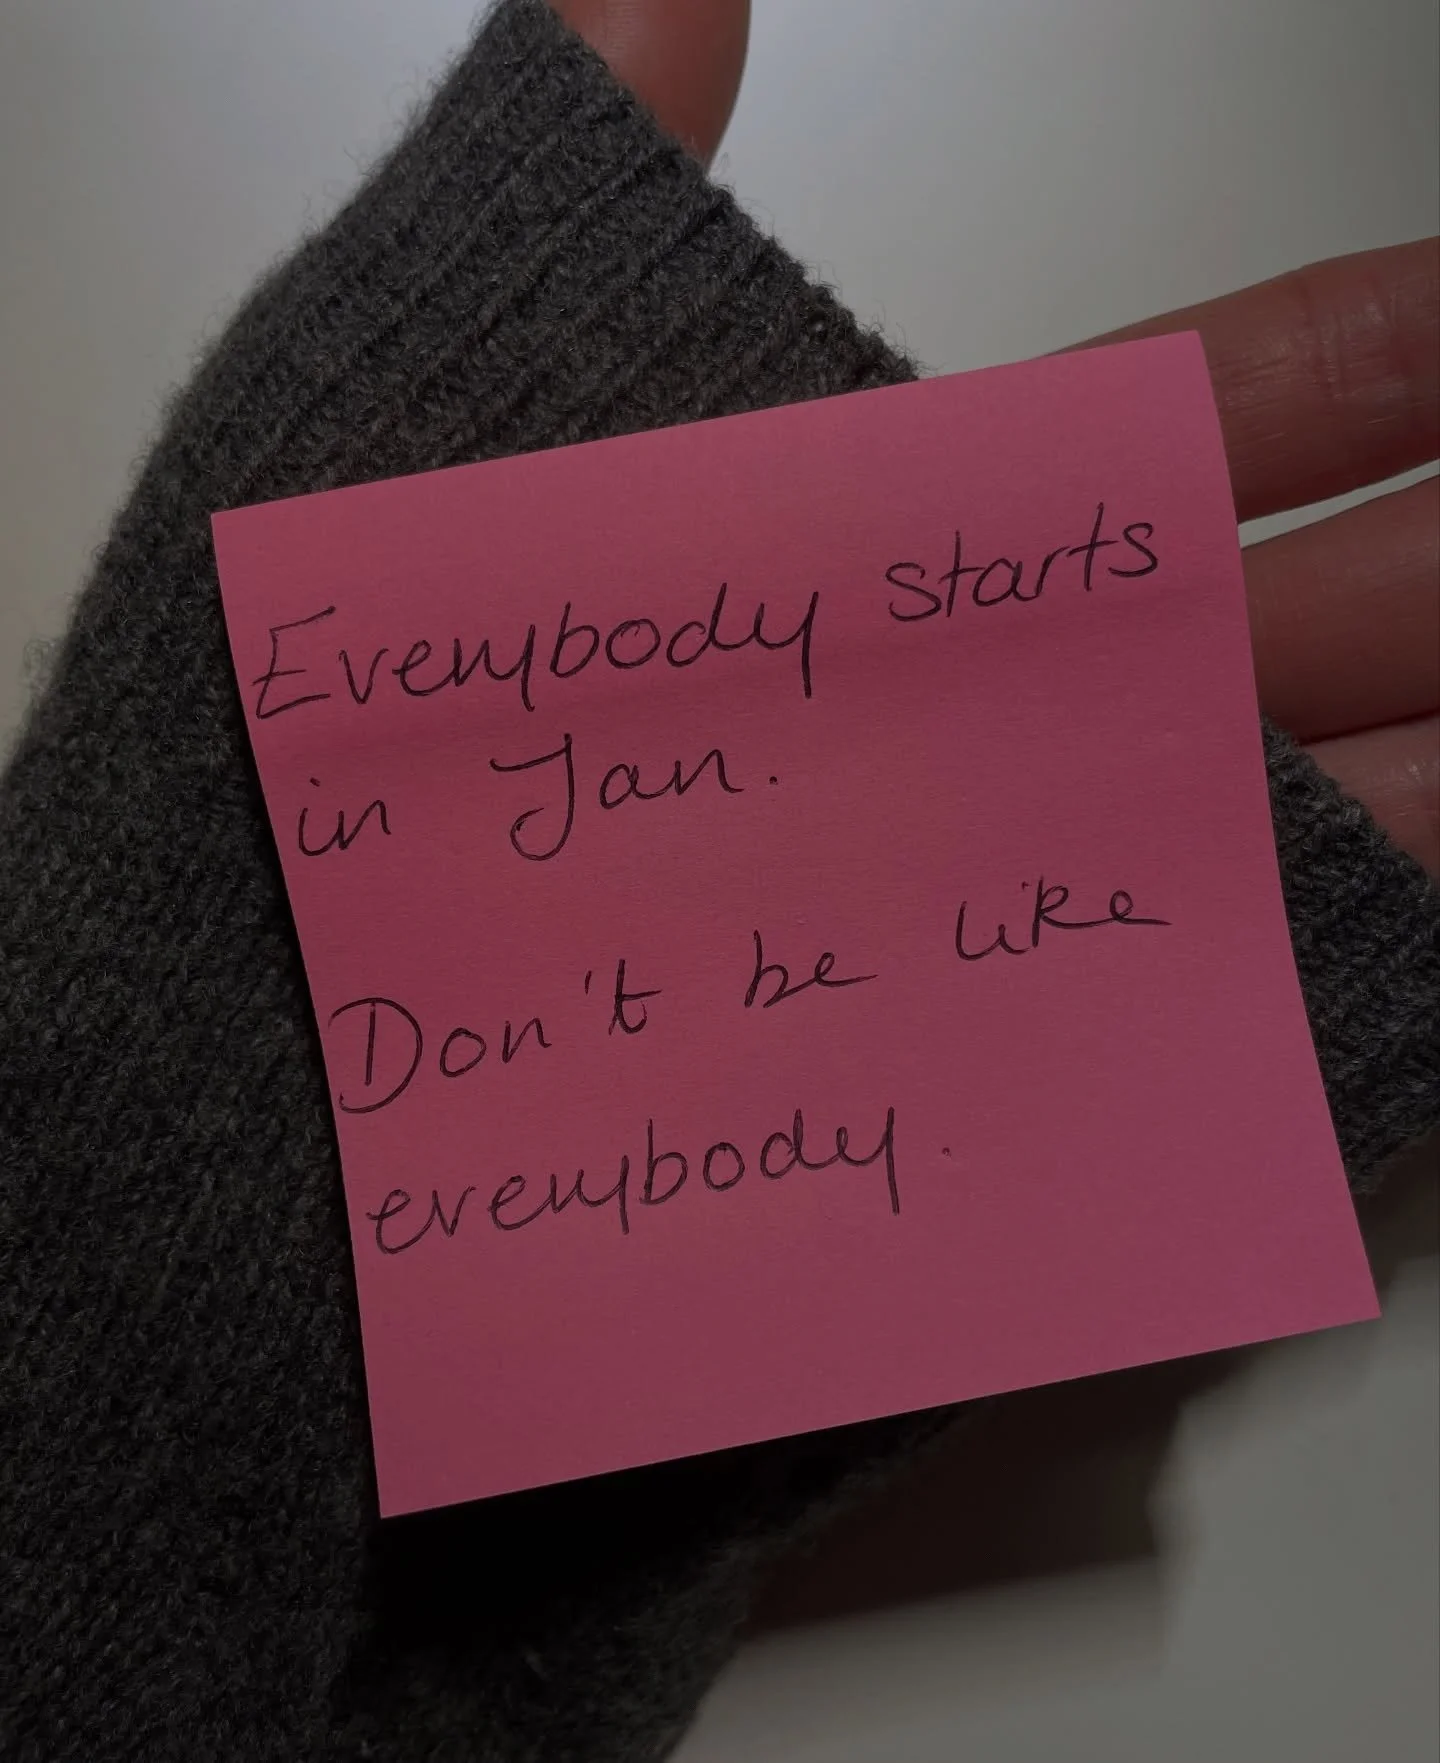 Everybody starts
in Jan.
Don't be like
everybody.